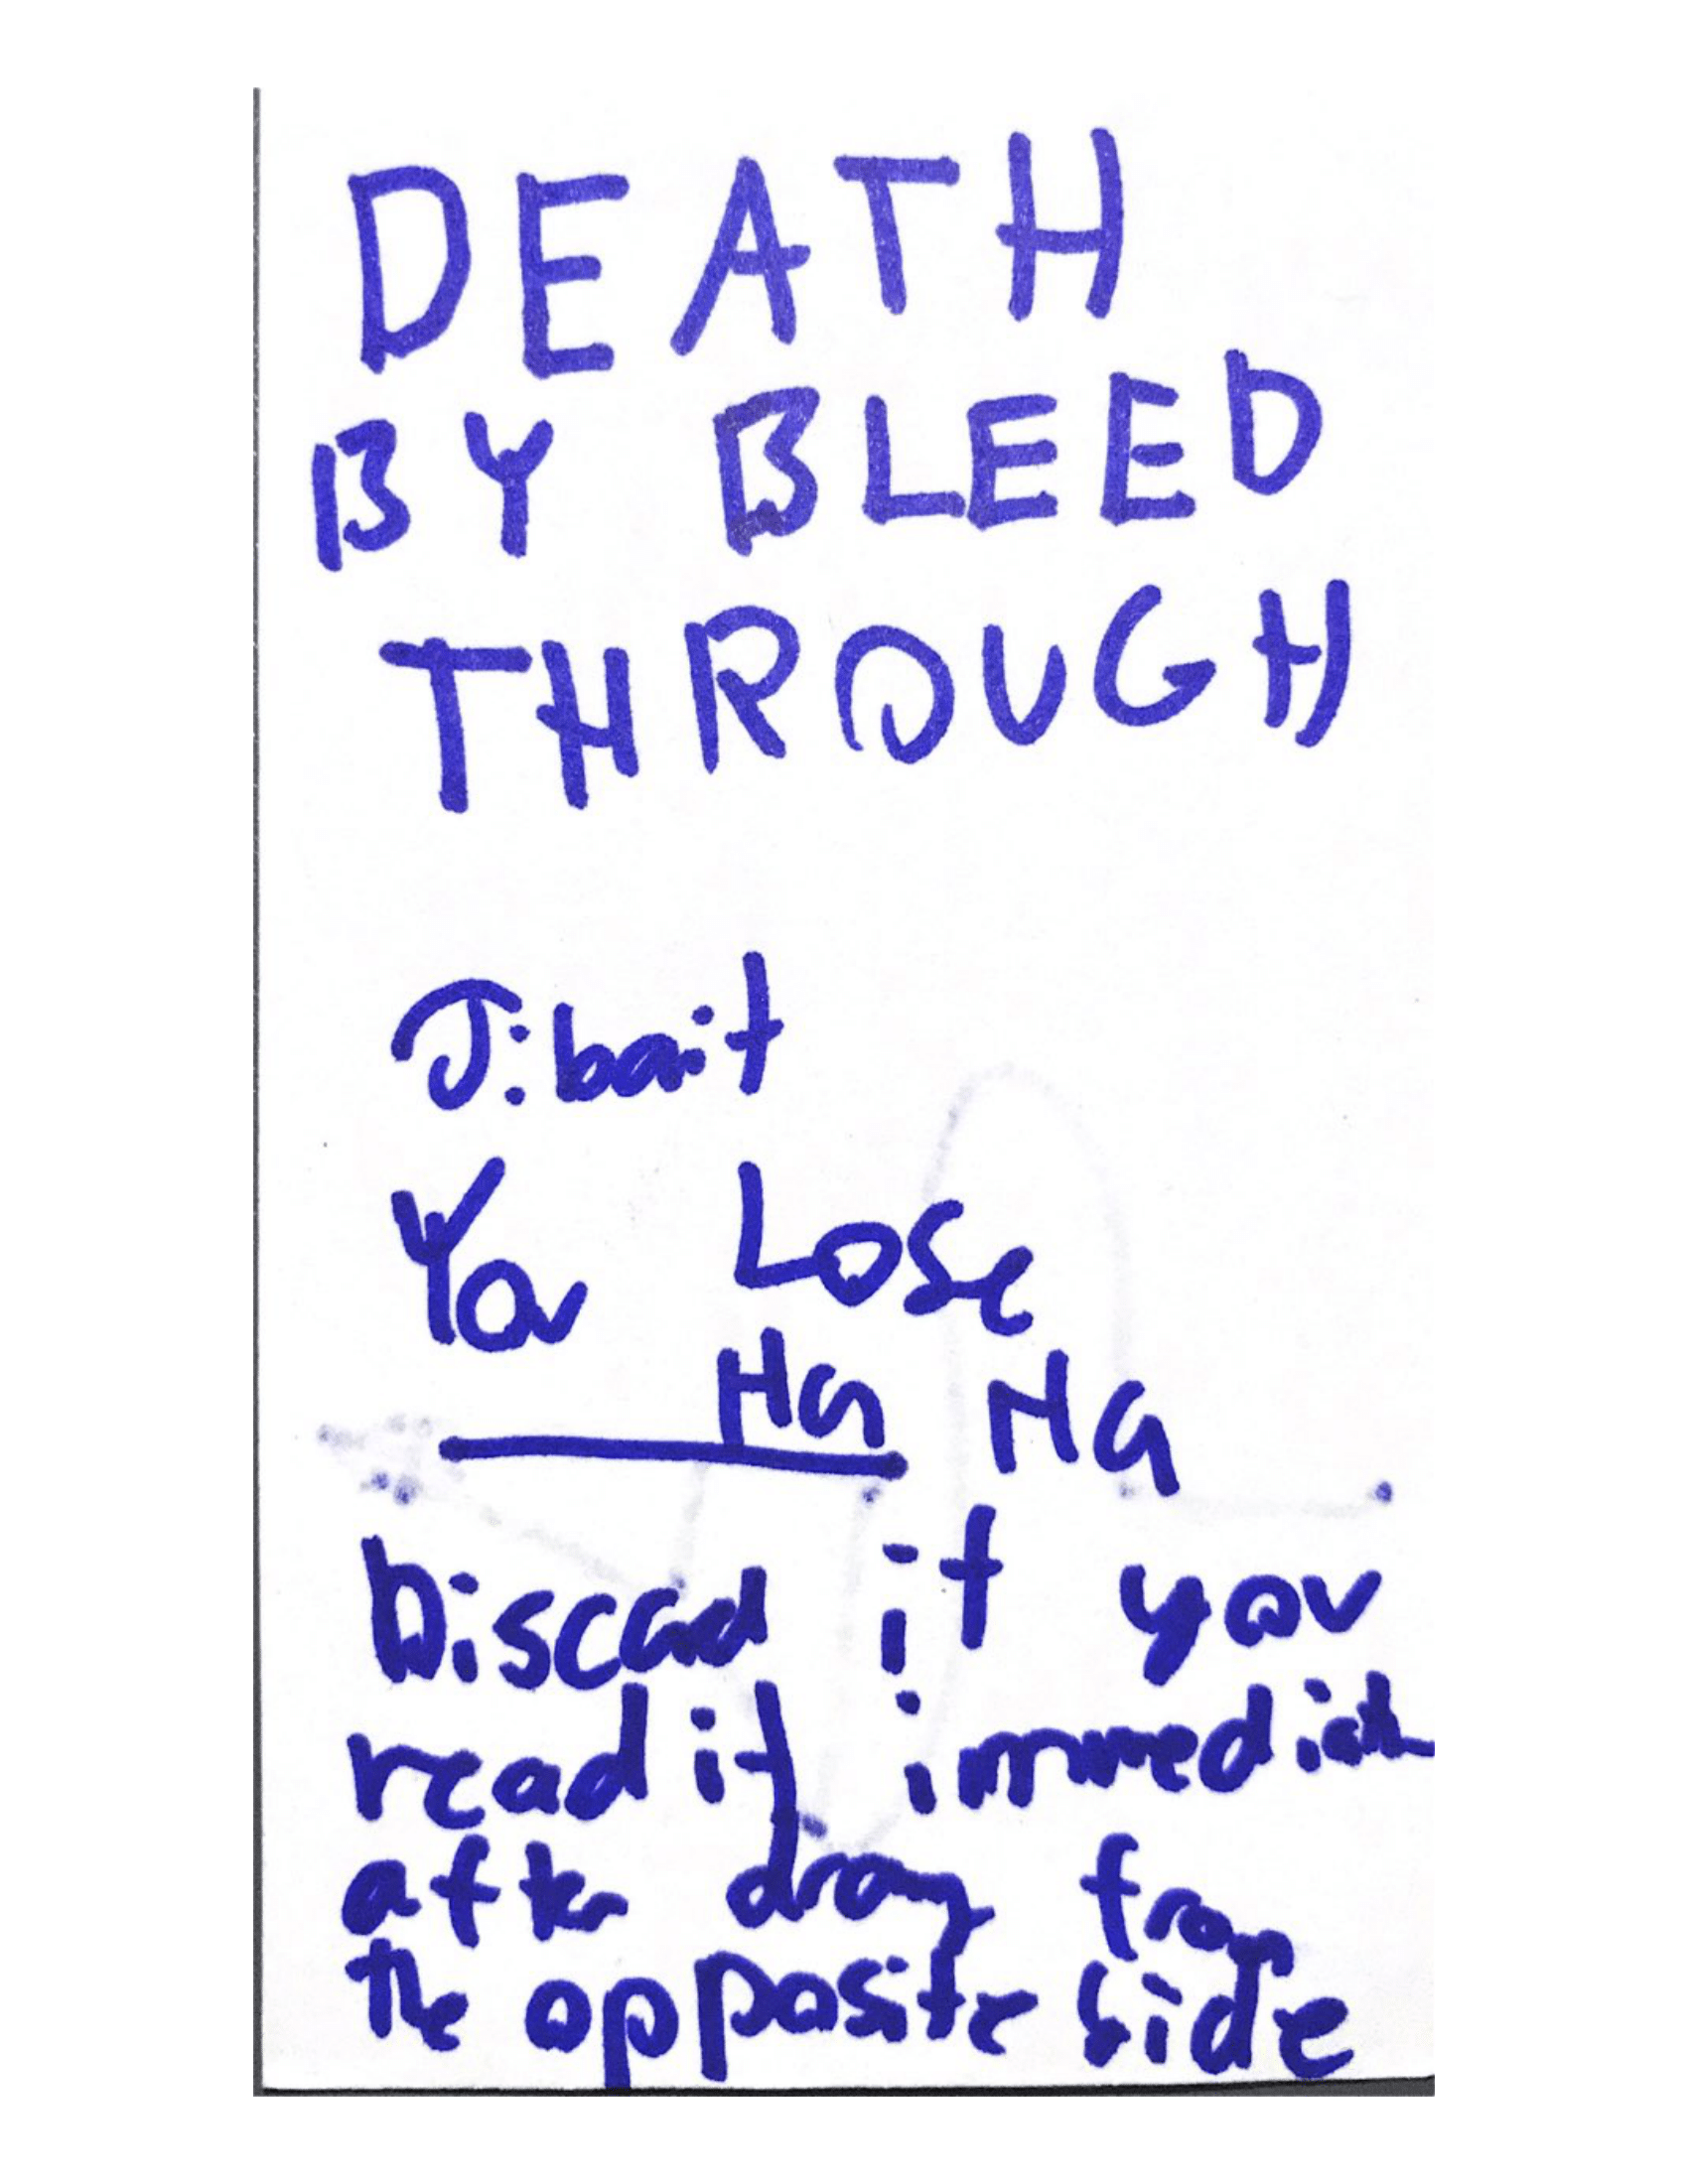 DEATH
BY BLEED
THROUGH
J:bait
You Lose
Ha HA
Discad it you
read it immediat
after draw from
the opposite side